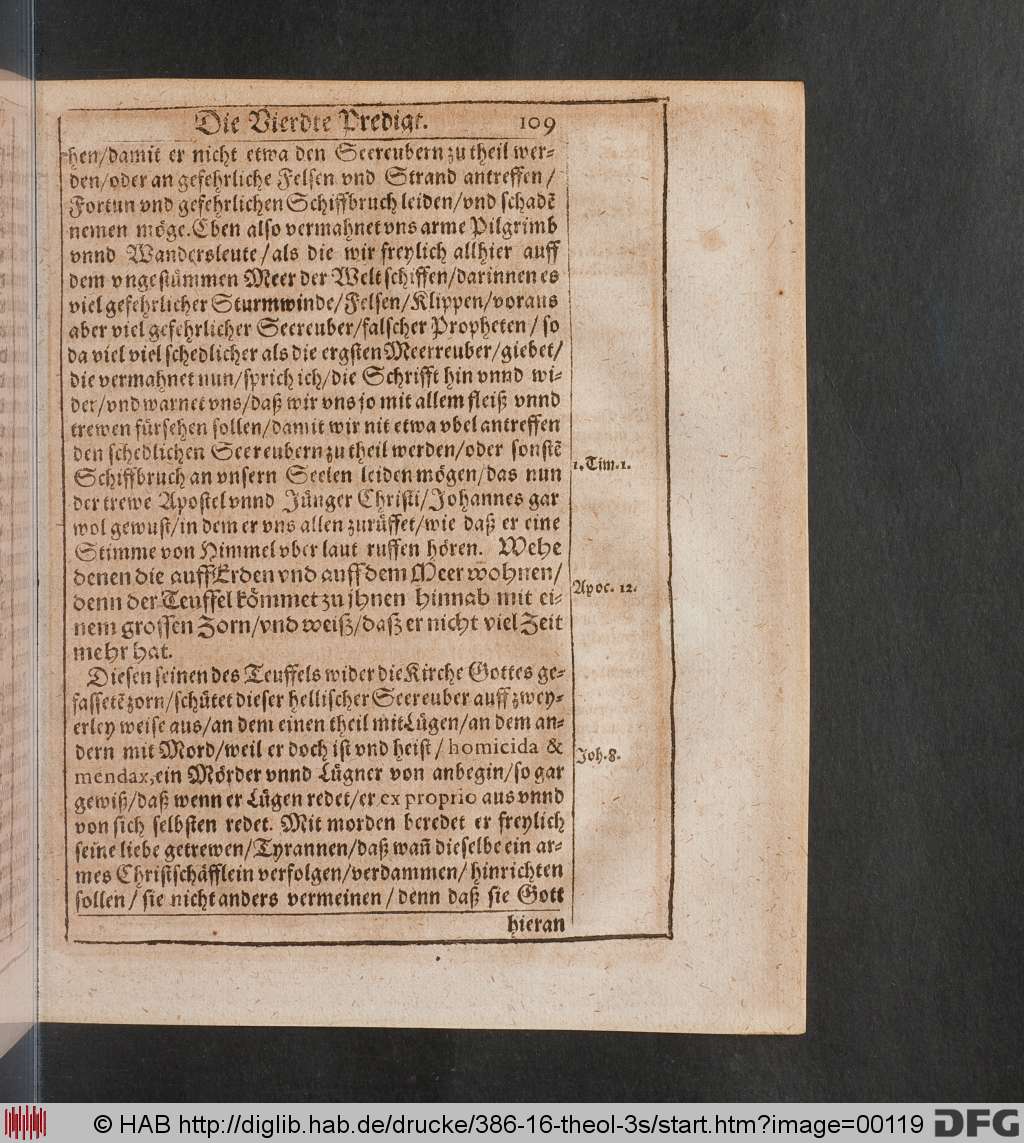 Die Vierdte Predigt. 109
hen/damit er nicht etwa den Seereubern zu theil wer-
den/oder an gefehrliche Felsen vnd Strand antreffen/
Fortun vnd gefehrlichen Schiffbruch leiden/vnd schadẽ
nemen möge. Eben also vermahnet vns arme Pilgrimb
vnnd Wandersleute/als die wir freylich allhier auff
dem vngestümmen Meer der Welt schiffen/darinnen es
viel gefehrlicher Sturmwinde/Felsen/Klippen/voraus
aber viel gefehrlicher Seereuber/falscher Propheten/so
da viel viel schedlicher als die ergsten Meerreuber/giebet/
die vermahnet nun/sprich ich/die Schrifft hin vnnd wi-
der/vnd warnet vns/daß wir vns jo mit allem fleiß vnnd
trewen fürsehen sollen/damit wir nit etwa vbel antreffen
den schedlichen Seereubern zu theil werden/oder sonstẽ
Schiffbruch an vnsern Seelen leiden mögen/das nun
1. Tim. 1.
der trewe Apostel vnnd Jünger Christi/Johannes gar
wol gewust/in dem er vns allen zurüffet/wie daß er eine
Stimme von Himmel vber laut ruffen hören. Wehe
denen die auff Erden vnd auff dem Meer wohnen/
Apoc. 12.
denn der Teuffel kömmet zu jhnen hinnab mit ei-
nem grossen Zorn/vnd weiß/daß er nicht viel Zeit
mehr hat.
Diesen seinen des Teuffels wider die Kirche Gottes ge-
fassetẽ zorn/schütet dieser hellischer Seereuber auff zwey-
erley weise aus/an dem einen theil mit Lügen/an dem an-
dern mit Mord/weil er doch ist vnd heist/homicida &
Joh. 8.
mendax, ein Mörder vnnd Lügner von anbegin/so gar
gewiß/daß wenn er Lügen redet/er ex proprio aus vnnd
von sich selbsten redet. Mit morden beredet er freylich
seine liebe getrewen/Tyrannen/daß wañ dieselbe ein ar-
mes Christschäfflein verfolgen/verdammen/hinrichten
sollen/sie nicht anders vermeinen/denn daß sie Gott
hieran
© HAB http://diglib.hab.de/drucke/386-16-theol-3s/start.htm?image=00119
DFG